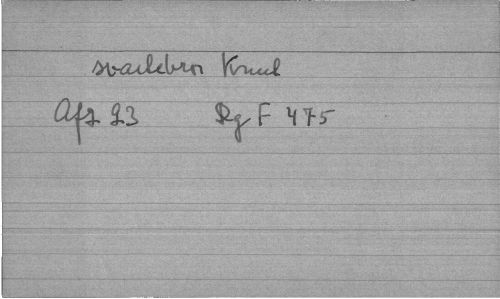 svartebror Knut
Afs 23 Rg F 475